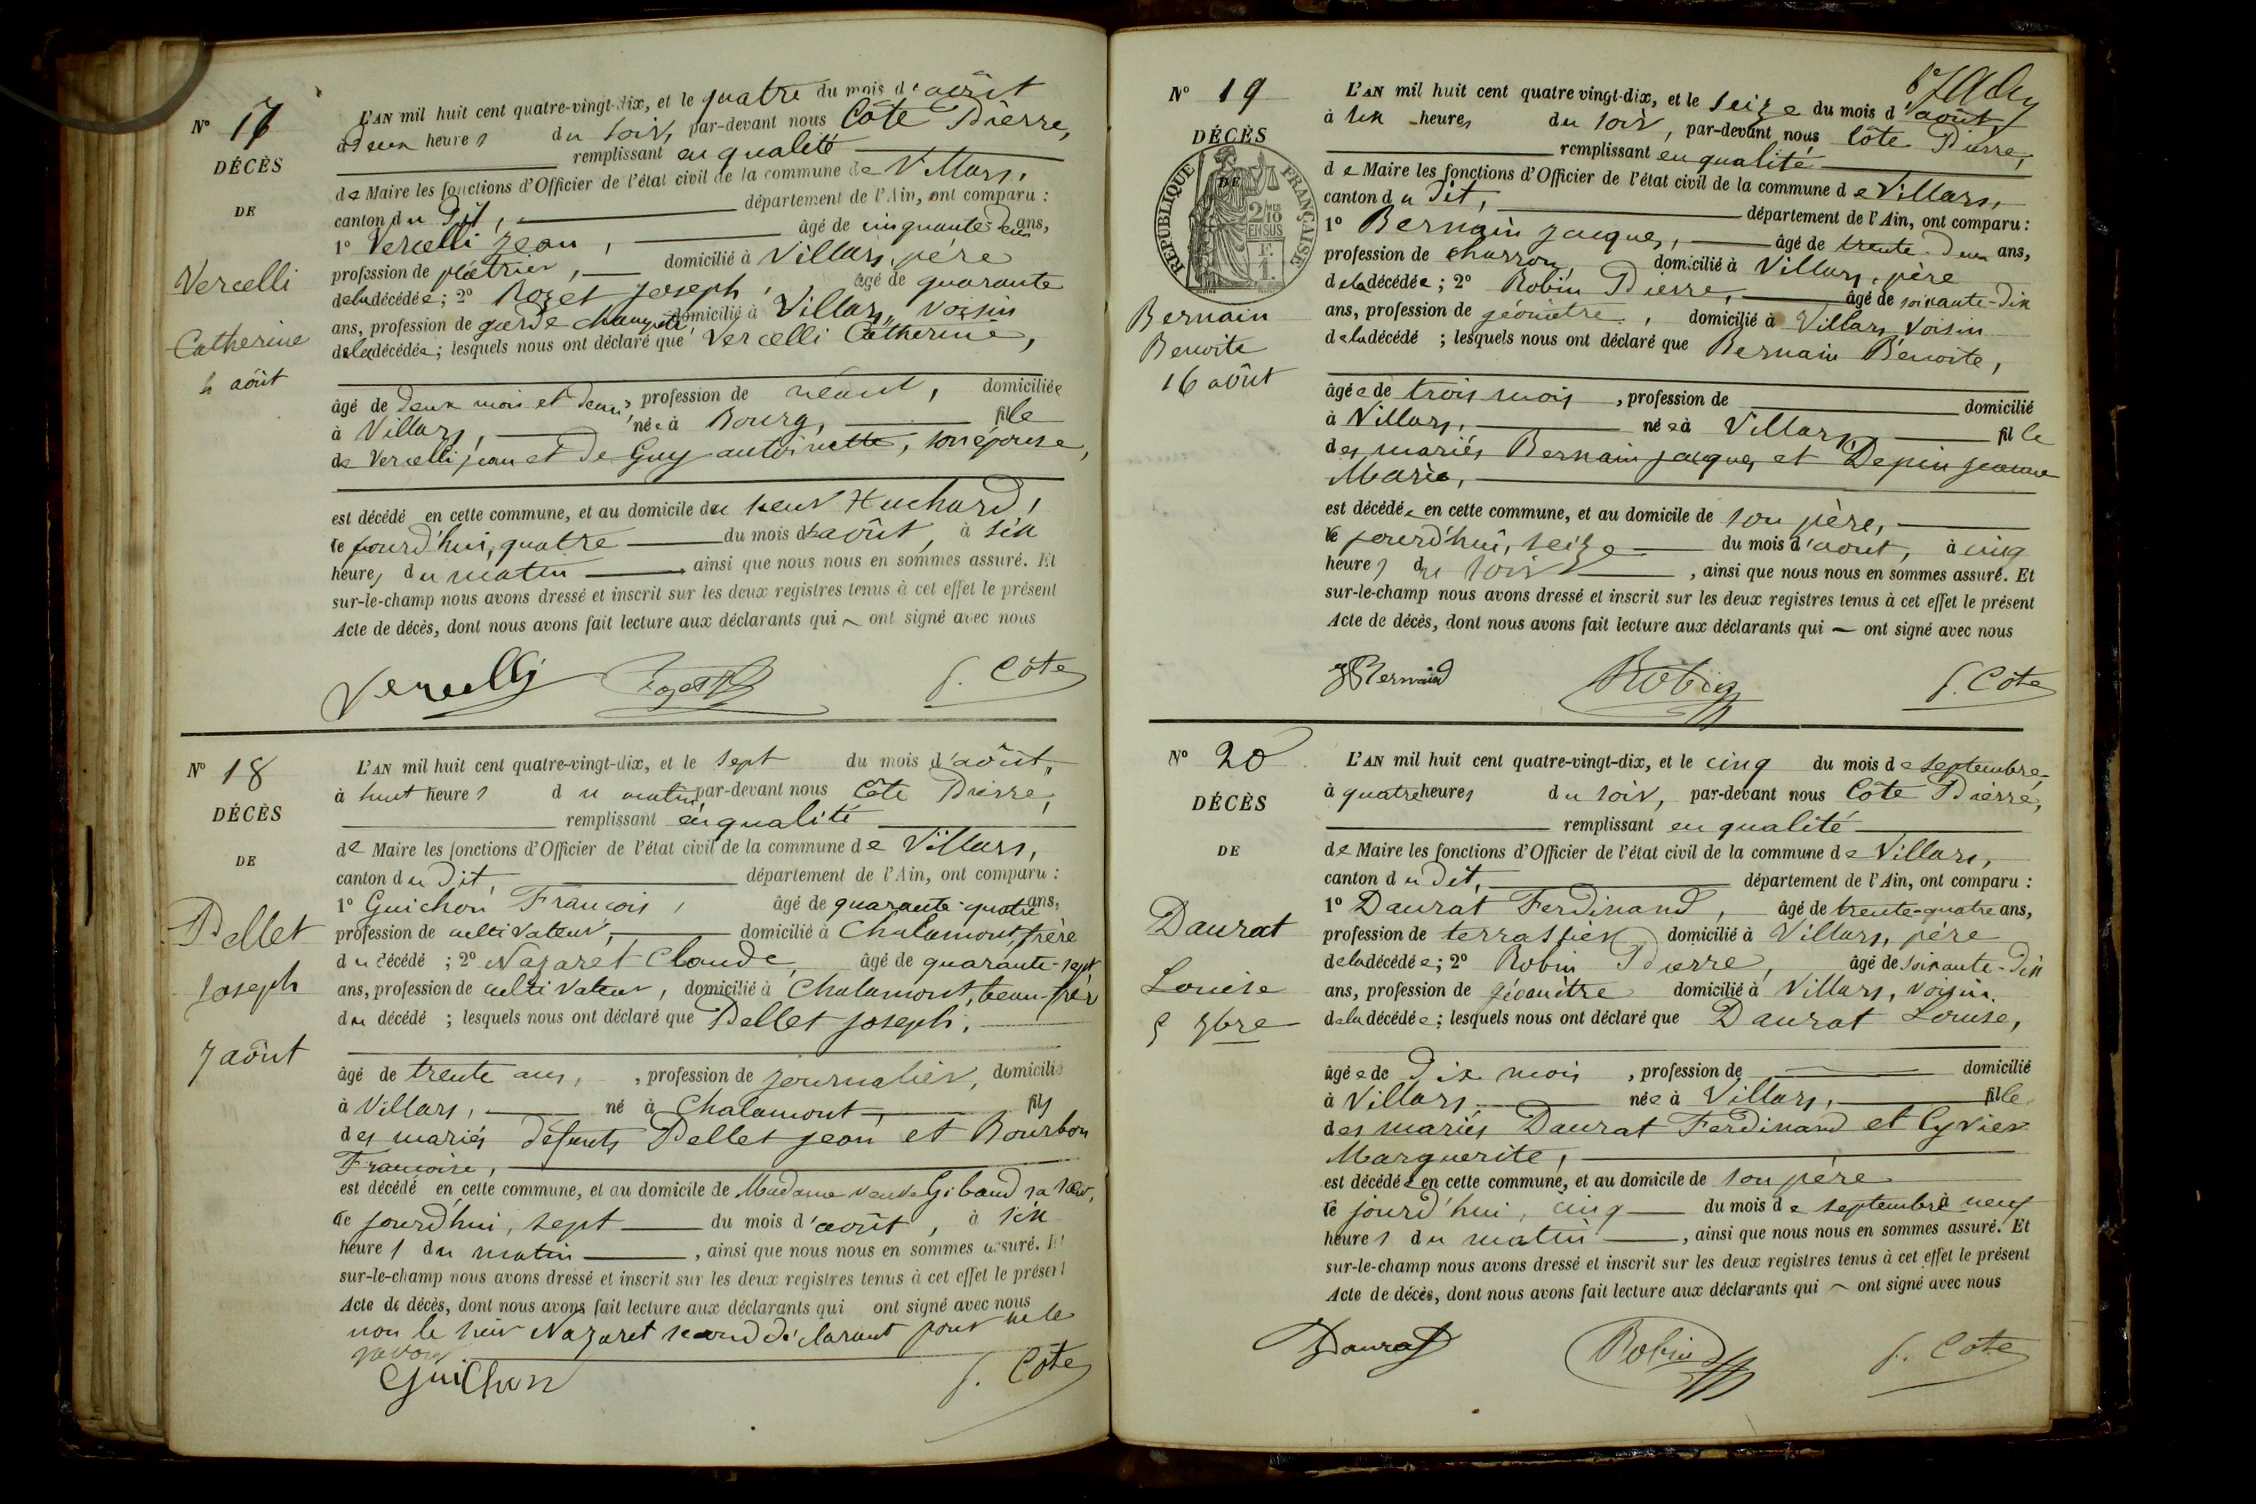 N° 17
DÉCÈS
DE
Vercelli
Catherine
4 août
L'AN mil huit cent quatre-vingt-dix, et le quatre du mois d'août
à deux heures du soir, par-devant nous Côte Pierre,
remplissant en qualité
de Maire les fonctions d'Officier de l'état civil de la commune de Villars,
canton du dit, département de l'Ain, ont comparu :
1° Vercelli Jean, âgé de cinquante-deux ans,
profession de plâtrier, domicilié à Villars, père
de la décédée; 2° Rozet Joseph, âgé de quarante
ans, profession de garde champêtre, domicilié à Villars, voisin
de la décédée; lesquels nous ont déclaré que Vercelli Catherine,
âgé de deux mois et demi, profession de néant, domiciliée
à Villars, née à Bourg, fille
de Vercelli Jean et de Guy antoinette, son épouse,
est décédé en cette commune, et au domicile du sieur Huchard,
ce jourd'hui, quatre du mois d'août, à six
heures du matin ainsi que nous nous en sommes assuré. Et
sur-le-champ nous avons dressé et inscrit sur les deux registres tenus à cet effet le présent
Acte de décès, dont nous avons fait lecture aux déclarants qui ont signé avec nous
Vercelli Rozet P. Côte
N° 18
DÉCÈS
DE
Pellet
Joseph
7 août
L'AN mil huit cent quatre-vingt-dix, et le sept du mois d'août,
à huit heures du matin, par-devant nous Côte Pierre,
remplissant en qualité
de Maire les fonctions d'Officier de l'état civil de la commune de Villars,
canton du dit, département de l'Ain, ont comparu :
1° Guichon François, âgé de quarante-quatre ans,
profession de cultivateur, domicilié à Chalamont, frère
du décédé ; 2° Nazaret Claude, âgé de quarante-sept
ans, profession de cultivateur, domicilié à Chalamont, beau-frère
du décédé ; lesquels nous ont déclaré que Pellet Joseph,
âgé de trente ans, , profession de journalier, domicilié
à Villars, né à Chalamont, fils
des mariés défunts Pellet Jean et Bourbon
Françoise,
est décédé en cette commune, et au domicile de Madame veuve Gibaud sa sœur,
ce jourd'hui, sept du mois d'août, à six
heures du matin , ainsi que nous nous en sommes assuré. Et
sur-le-champ nous avons dressé et inscrit sur les deux registres tenus à cet effet le présent
Acte de décès, dont nous avons fait lecture aux déclarants qui ont signé avec nous
non le sieur Nazaret second déclarant pour ne le
savoir
Guichon P. Côte
N° 19
DÉCÈS
DE
RÉPUBLIQUE FRANÇAISE
2/10 EN SUS
Bernain
Benoite
16 août
L'AN mil huit cent quatre vingt-dix, et le seize du mois d'août
à six heures du soir, par-devant nous Côte Pierre,
remplissant en qualité
de Maire les fonctions d'Officier de l'état civil de la commune de Villars,
canton du dit, département de l'Ain, ont comparu :
1° Bernain Jacques, âgé de trente-deux ans,
profession de charron, domicilié à Villars, père
de la décédée; 2° Robin Pierre, âgé de soixante-dix
ans, profession de géomètre, domicilié à Villars, voisin
de la décédé ; lesquels nous ont déclaré que Bernain Benoite,
âgée de trois mois , profession de domicilié
à Villars, née à Villars, fille
des mariés Bernain Jacques et Depin Jeanne
Marie,
est décédée en cette commune, et au domicile de son père,
ce jourd'hui, seize du mois d'aout, à cinq
heures du soir , ainsi que nous nous en sommes assuré. Et
sur-le-champ nous avons dressé et inscrit sur les deux registres tenus à cet effet le présent
Acte de décès, dont nous avons fait lecture aux déclarants qui ont signé avec nous
Robin P. Côte
N° 20
DÉCÈS
DE
Daurat
Louise
5 7bre
L'AN mil huit cent quatre-vingt-dix, et le cinq du mois de septembre
à quatre heures du soir, par-devant nous Côte Pierre,
remplissant en qualité
de Maire les fonctions d'Officier de l'état civil de la commune de Villars,
canton du dit, département de l'Ain, ont comparu :
1° Daurat Ferdinand, âgé de trente-quatre ans,
profession de terrassier domicilié à Villars, père
de la décédée; 2° Robin Pierre, âgé de soixante-dix
ans, profession de géomètre domicilié à Villars, voisin
de la décédée; lesquels nous ont déclaré que Daurat Louise,
âgée de dix mois , profession de domicilié
à Villars née à Villars, fille
des mariés Daurat Ferdinand et Cyvier
Marguerite,
est décédée en cette commune, et au domicile de son père
ce jourd'hui, cinq du mois de septembre à neuf
heures du matin , ainsi que nous nous en sommes assuré. Et
sur-le-champ nous avons dressé et inscrit sur les deux registres tenus à cet effet le présent
Acte de décès, dont nous avons fait lecture aux déclarants qui ont signé avec nous
Daurat Robin P. Côte